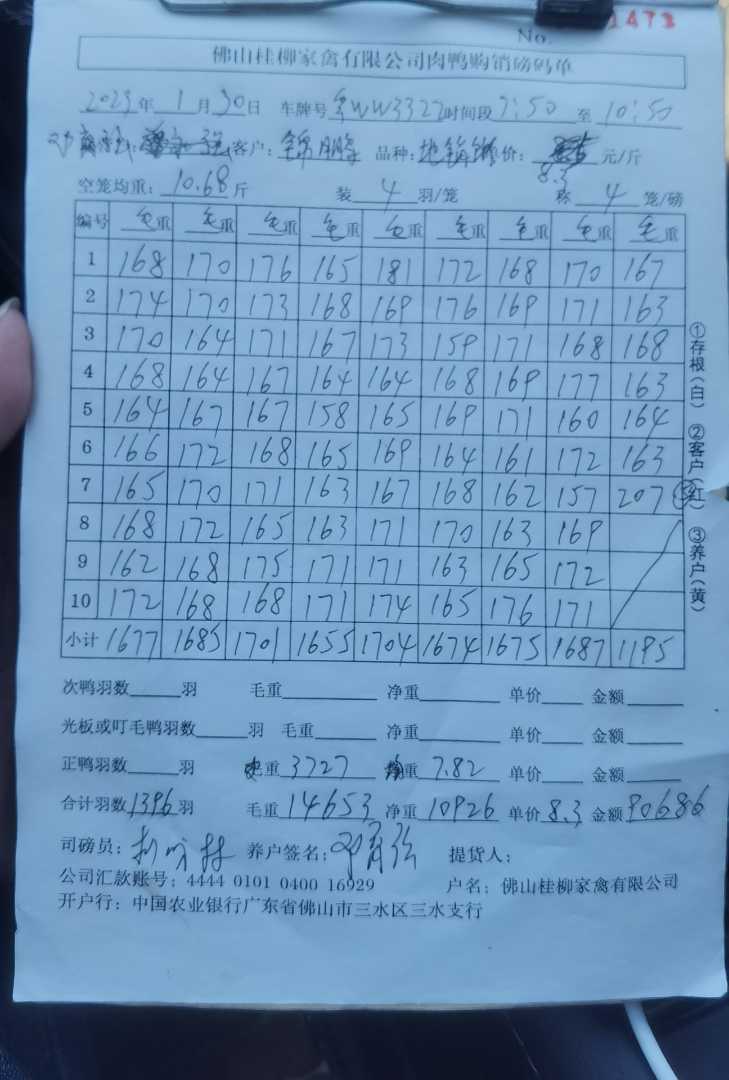 No. 1473
佛山桂柳家禽有限公司肉鸭购销磅码单
2023年 1月30日 车牌号 WW3327 时间段 7:50 至 10:50
客户: 锦鹏 品种: 价: 8.3 元/斤
空笼均重: 10.68 斤 装 4 羽/笼 称 4 笼/磅
编号 毛重 毛重 毛重 毛重 毛重 毛重 毛重 毛重 毛重
1 168 170 176 165 181 172 168 170 167
2 174 170 173 168 169 176 169 171 163
3 170 164 171 167 173 159 171 168 168
4 168 164 167 164 164 168 169 177 163
5 164 167 167 158 165 169 171 160 164
6 166 172 168 165 169 164 161 172 163
7 165 170 171 163 167 168 162 157 207
8 168 172 165 163 171 170 163 169
9 162 168 175 171 171 163 165 172
10 172 168 168 171 174 165 176 171
小计 1677 1685 1701 1655 1704 1674 1675 1687 1195
次鸭羽数 羽 毛重 净重 单价 金额
光板或叮毛鸭羽数 羽 毛重 净重 单价 金额
正鸭羽数 羽 重 3727 重 7.82 单价 金额
合计羽数 1396 羽 毛重 14653 净重 10926 单价 8.3 金额 90686
司磅员: 养户签名: 提货人:
公司汇款账号: 4444 0101 0400 16929 户名: 佛山桂柳家禽有限公司
开户行: 中国农业银行广东省佛山市三水区三水支行
①存根(白) ②客户(红) ③养户(黄)